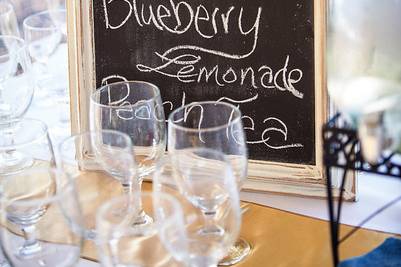 Blueberry
Lemonade
Peach Tea